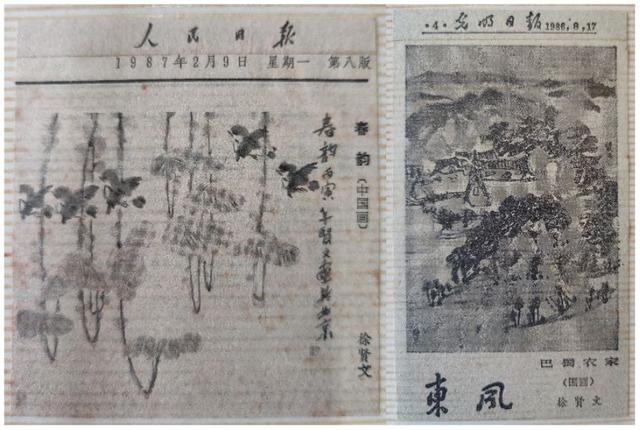 人民日报
1987年2月9日 星期一 第八版
春韵(中国画)
徐贤文
春韵丙寅年贤文画于北京
·4·光明日报 1986.8.17
巴蜀农家
(国画)
徐贤文
東风